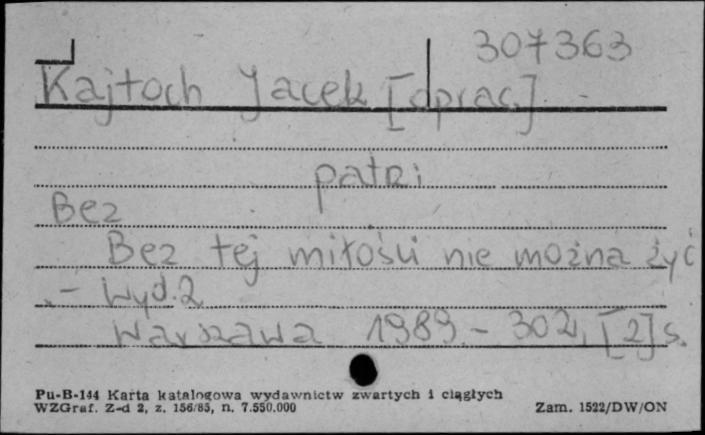 307363
Kajtoch Jacek [oprac.]
patrz
Bez
Bez tej miłości nie można żyć
.- Wyd. 2
Warszawa 1989.- 302, [2] s.
Pu-B-144 Karta katalogowa wydawnictw zwartych i ciągłych
WZGraf. Z-d 2, z. 156/85, n. 7.550.000
Zam. 1522/DW/ON